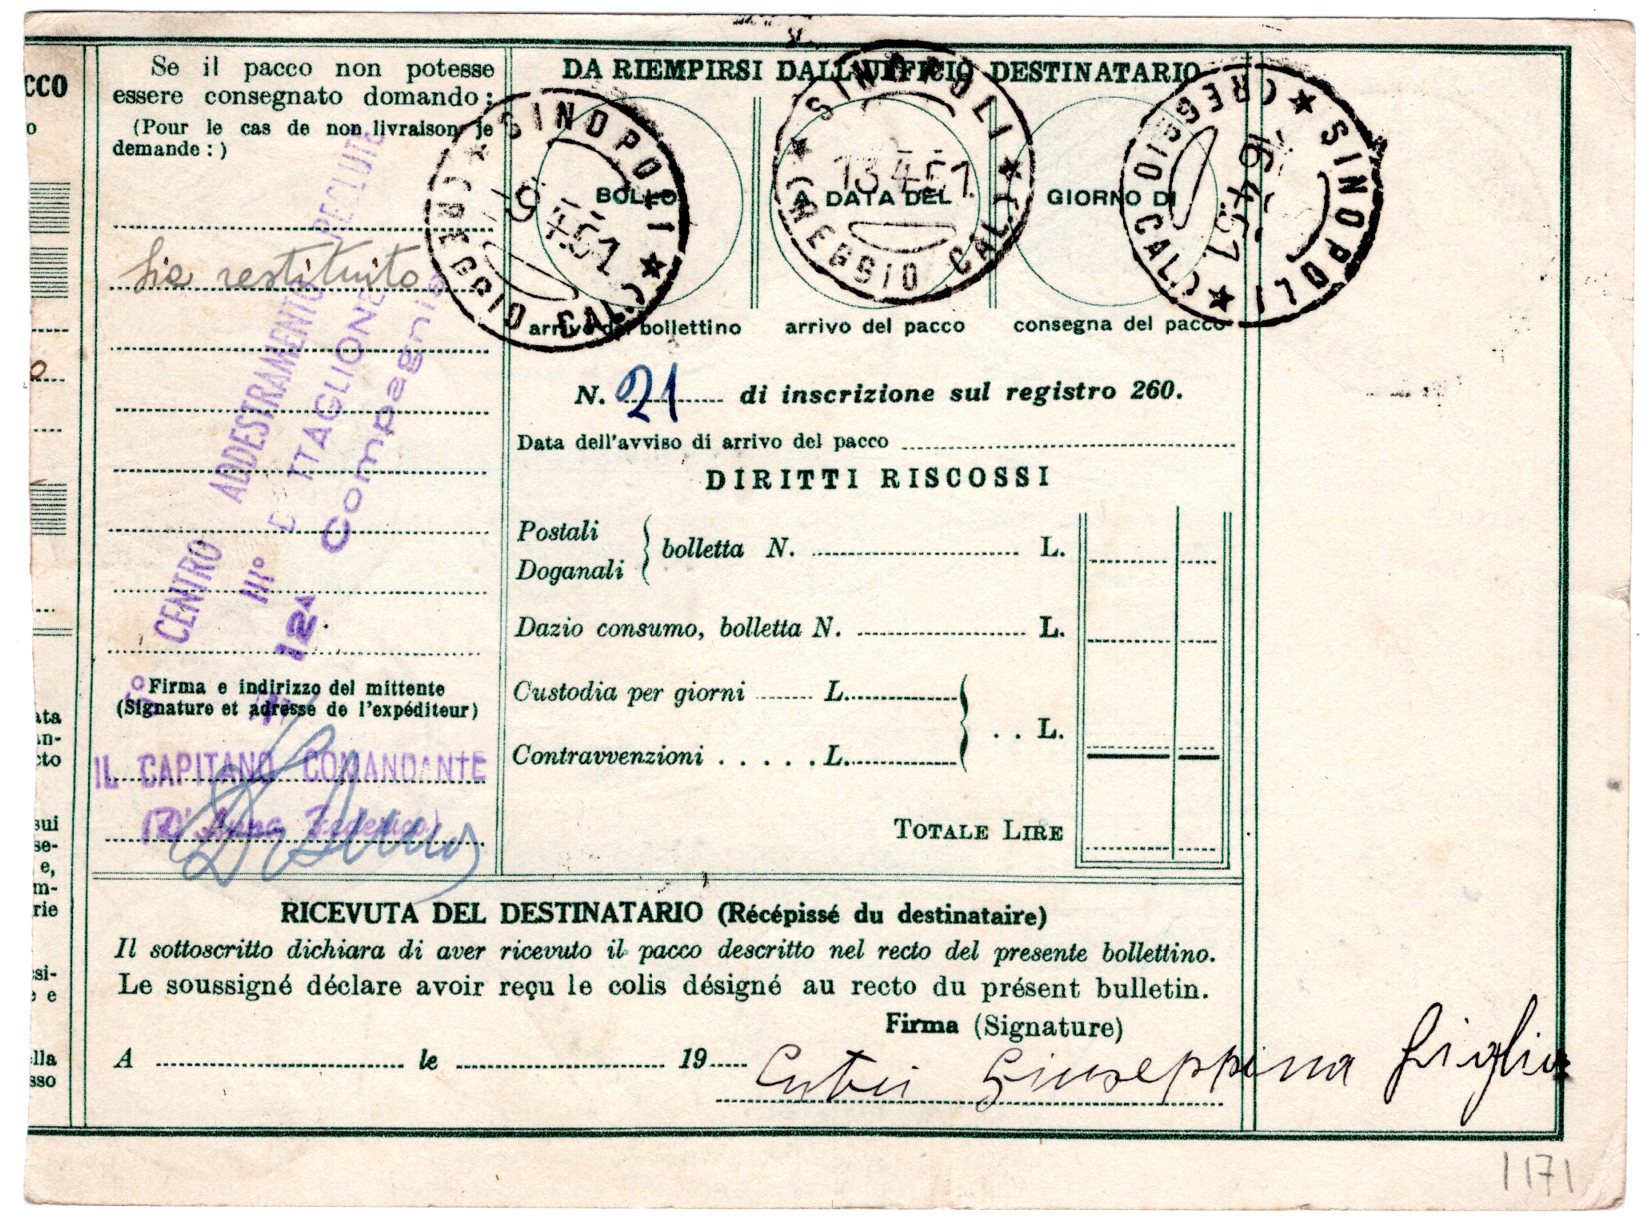 CCO
o
o
ata
an-
cto
sui
se-
e,
m-
rie
si-
e e
lla
sso
Se il pacco non potesse
essere consegnato domando:
(Pour le cas de non livraison je
demande:)
Sia restituito
CENTRO ADDESTRAMENTO RECLUTE
III° B TTAGLIONE
12ᴬ Compagnia
Firma e indirizzo del mittente
(Signature et adresse de l'expéditeur)
IL CAPITANO COMANDANTE
(D'Anna Federico)
DA RIEMPIRSI DALL'UFFICIO DESTINATARIO
SINOPOLI ★ (REGGIO CAL.) ★
9.4.51
SINOPOLI ★ (REGGIO CAL.) ★
13.4.51
SINOPOLI ★ (REGGIO CAL.) ★
16.4.51
BOLLO A DATA DEL GIORNO DI
arrivo del bollettino arrivo del pacco consegna del pacco
N. 21 di inscrizione sul registro 260.
Data dell'avviso di arrivo del pacco
DIRITTI RISCOSSI
Postali
Doganali
bolletta N. L.
Dazio consumo, bolletta N. L.
Custodia per giorni L.
. . L.
Contravvenzioni . . . . . L.
TOTALE LIRE
RICEVUTA DEL DESTINATARIO (Récépissé du destinataire)
Il sottoscritto dichiara di aver ricevuto il pacco descritto nel recto del presente bollettino.
Le soussigné déclare avoir reçu le colis désigné au recto du présent bulletin.
Firma (Signature)
A le 19
Cutrì Giuseppina figlia
1171